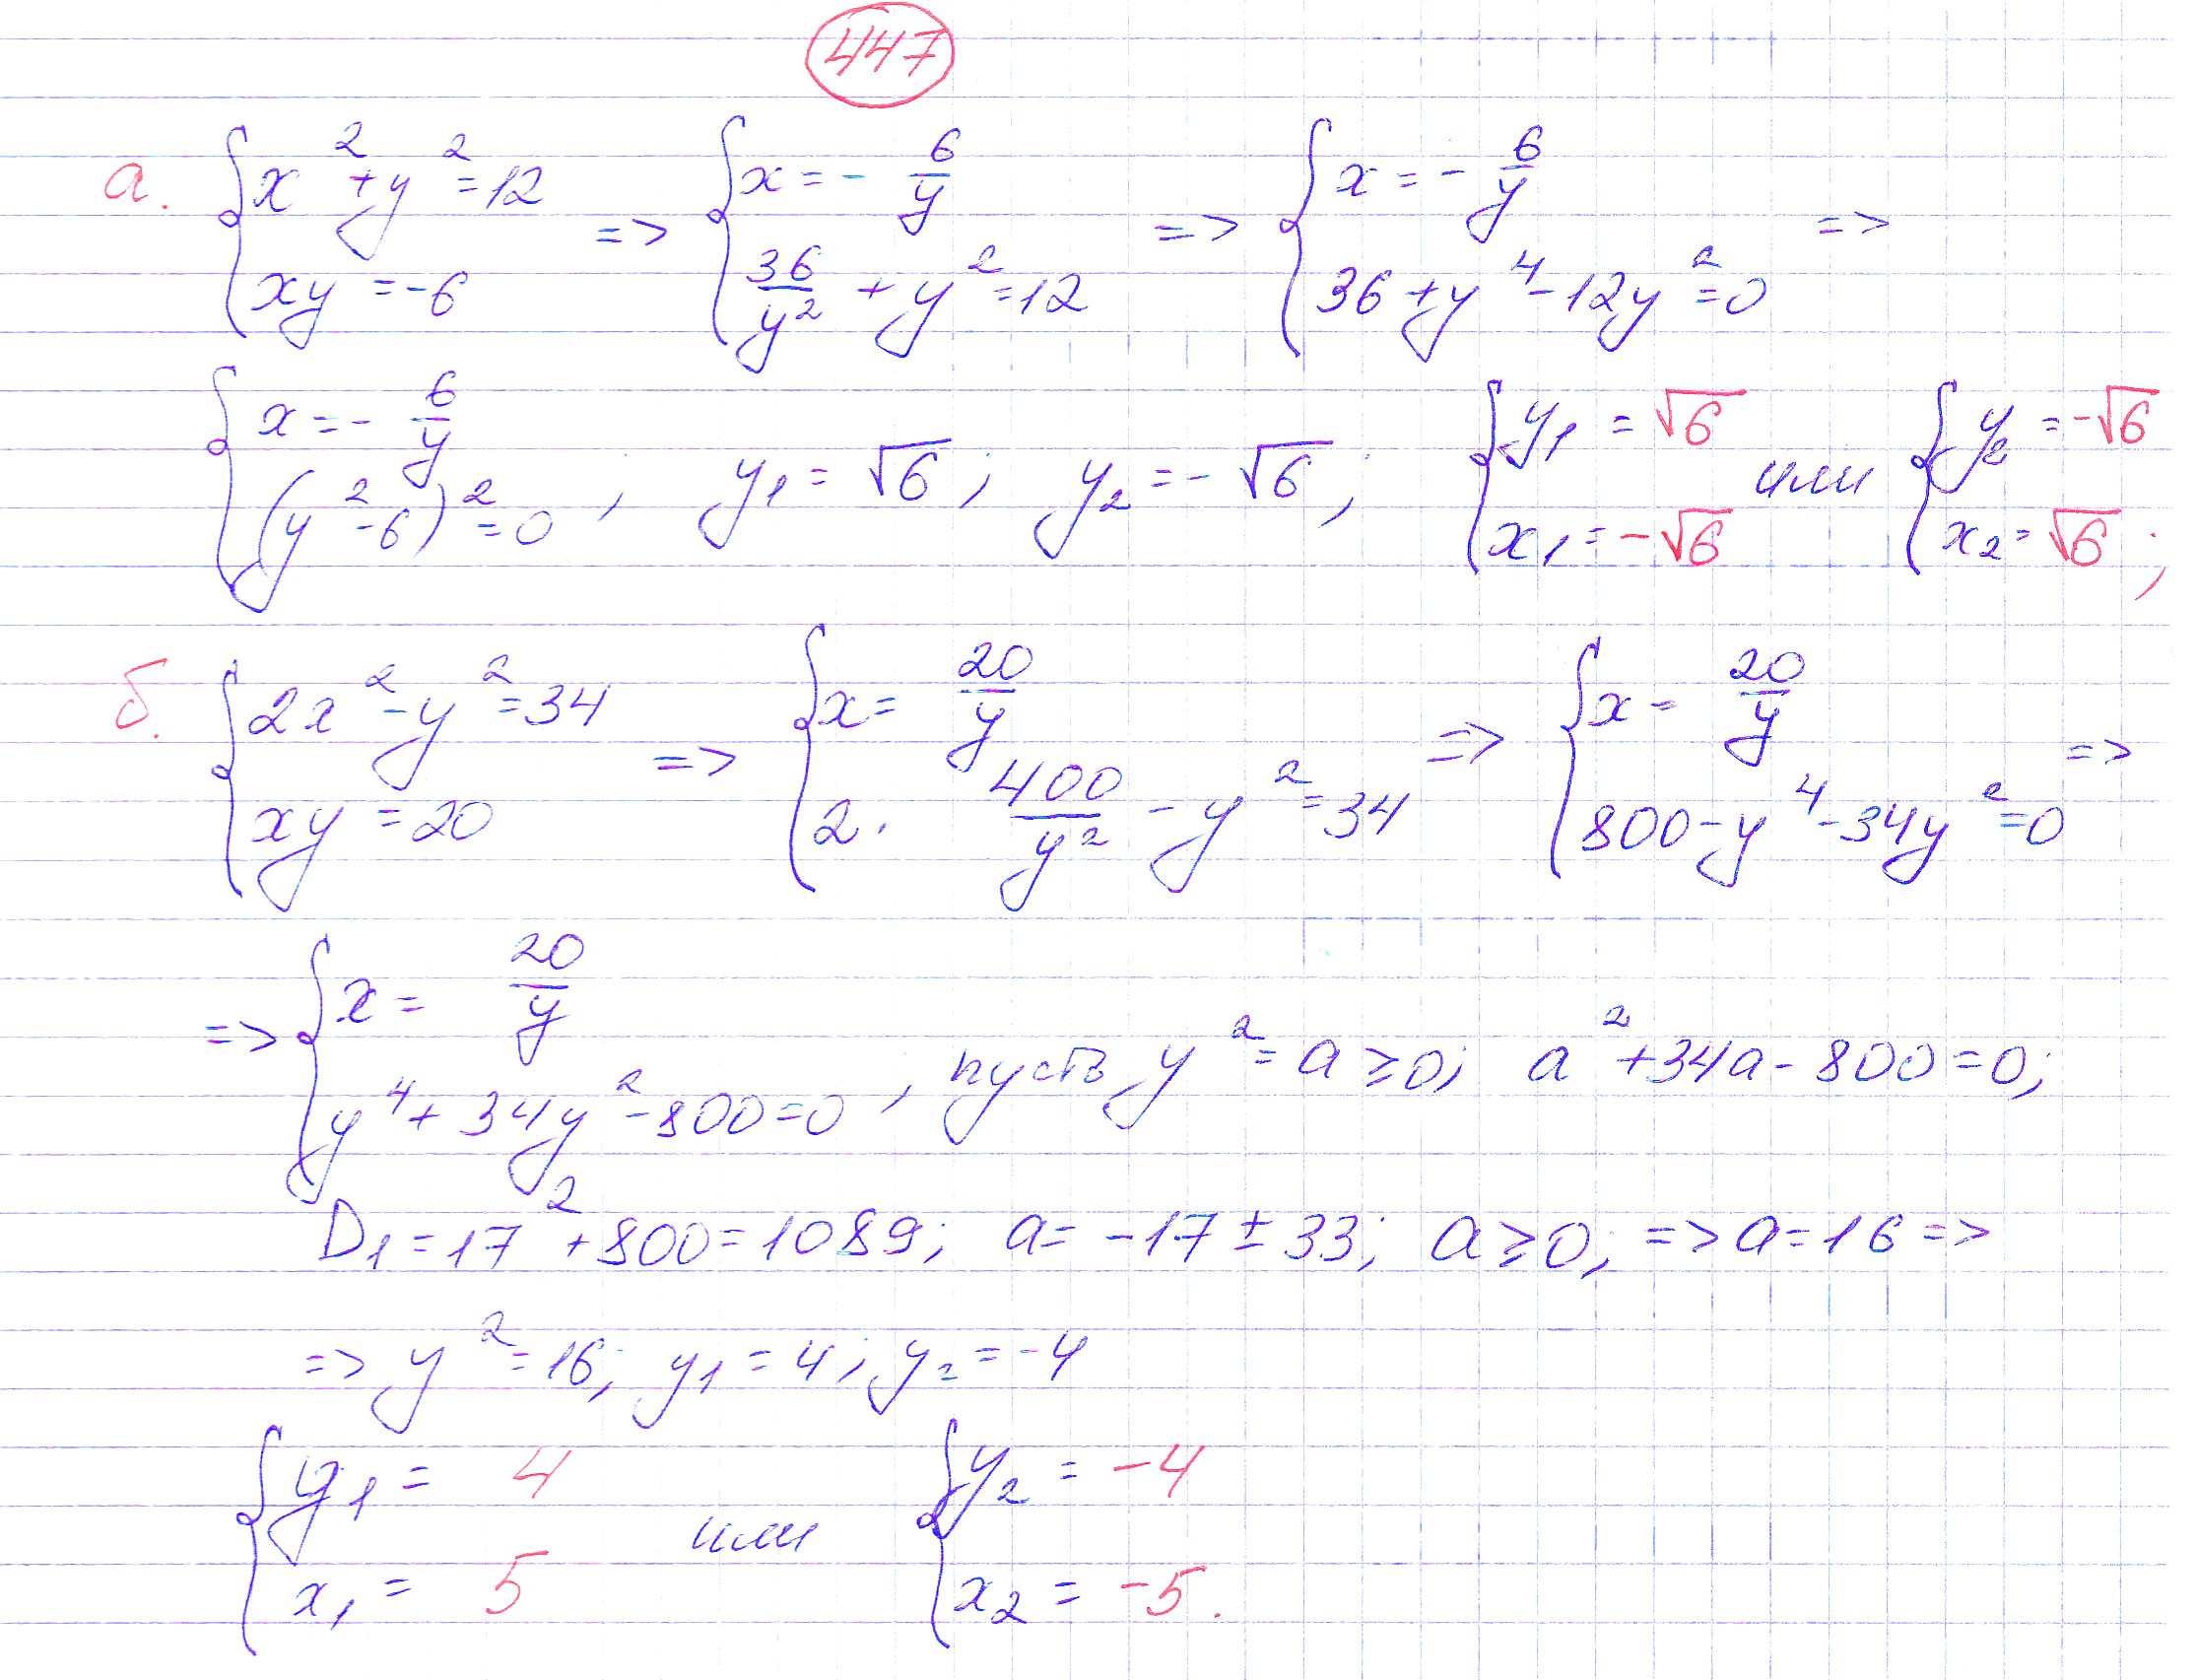 447
а. { x² + y² = 12 ; xy = -6 => { x = - 6/y ; 36/y² + y² = 12 => { x = - 6/y ; 36 + y⁴ - 12y² = 0 =>
{ x = - 6/y ; (y² - 6)² = 0 ; y₁ = √6 ; y₂ = - √6 ; { y₁ = √6 ; x₁ = -√6 или { y₂ = -√6 ; x₂ = √6 ;
б. { 2x² - y² = 34 ; xy = 20 => { x = 20/y ; 2 · 400/y² - y² = 34 => { x = 20/y ; 800 - y⁴ - 34y² = 0 =>
=> { x = 20/y ; y⁴ + 34y² - 800 = 0 , пусть y² = a ≥ 0; a² + 34a - 800 = 0;
D₁ = 17² + 800 = 1089; a = -17 ± 33; a ≥ 0; => a = 16 =>
=> y² = 16; y₁ = 4; y₂ = -4
{ y₁ = 4 ; x₁ = 5 или { y₂ = -4 ; x₂ = -5.